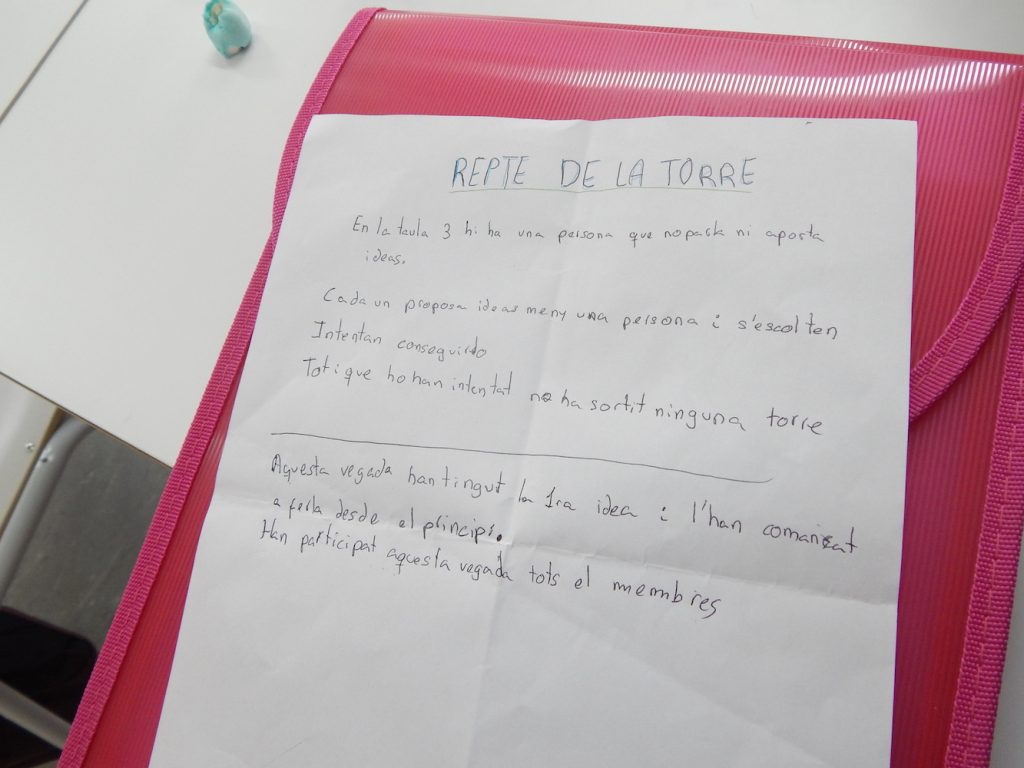 REPTE DE LA TORRE
En la taula 3 hi ha una persona que no parla ni aposta
ideas.
Cada un proposa ideas meny una persona i s'escolten
Intentan conseguirdo
Tot i que ho han intentat no ha sortit ninguna torre
Aquesta vegada han tingut la 1ra idea i l'han comançat
a ferla desde el principi.
Han participat aquesta vegada tots el membres